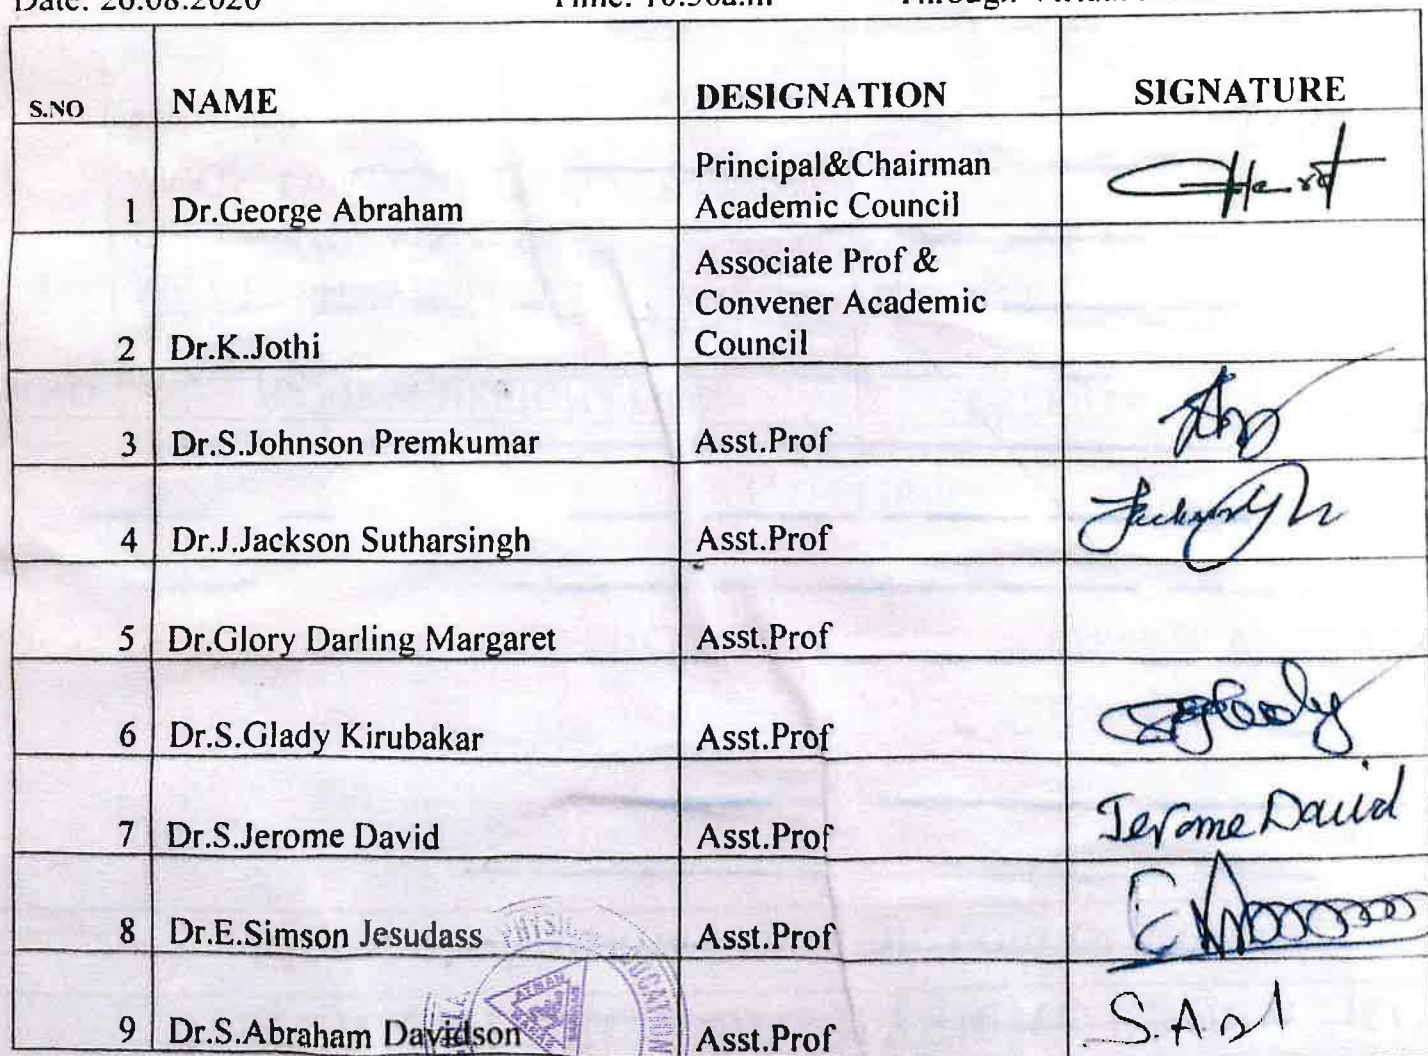 Date: 26.08.2020 Time: 10.30a.m Through
S.NO NAME DESIGNATION SIGNATURE
1 Dr.George Abraham Principal&Chairman
Academic Council
2 Dr.K.Jothi Associate Prof &
Convener Academic
Council
3 Dr.S.Johnson Premkumar Asst.Prof
4 Dr.J.Jackson Sutharsingh Asst.Prof
5 Dr.Glory Darling Margaret Asst.Prof
6 Dr.S.Glady Kirubakar Asst.Prof
7 Dr.S.Jerome David Asst.Prof Jerome David
8 Dr.E.Simson Jesudass Asst.Prof
9 Dr.S.Abraham Davidson Asst.Prof